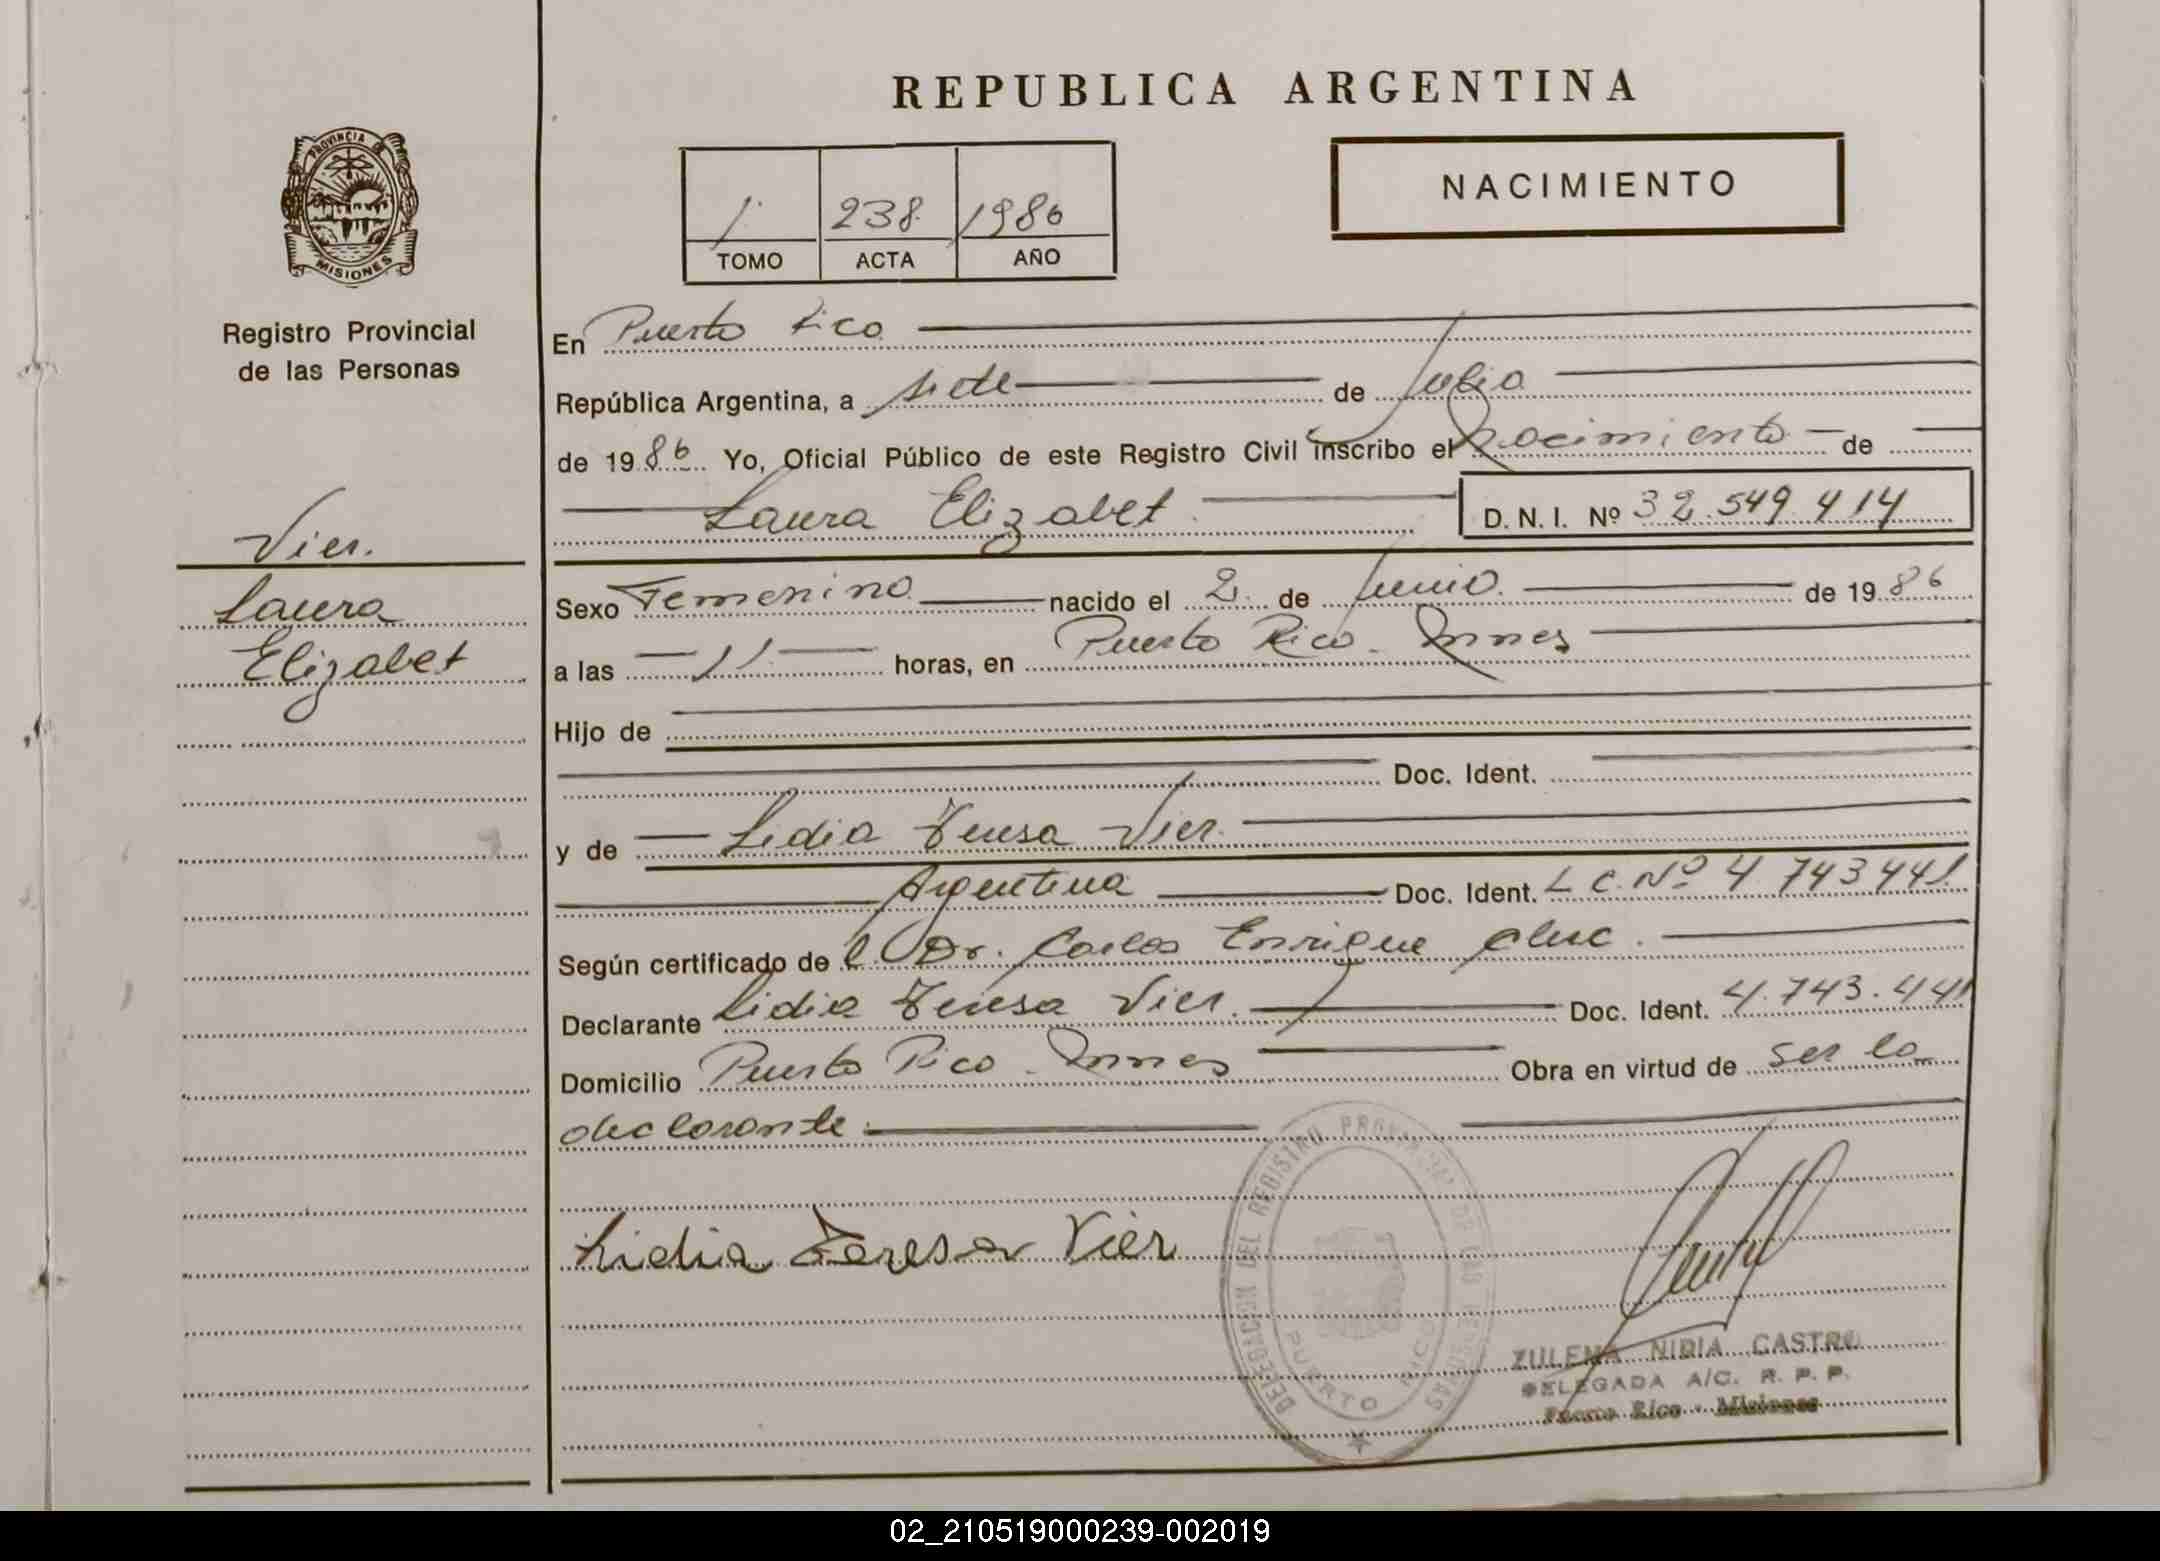 REPUBLICA ARGENTINA
PROVINCIA DE
MISIONES
Registro Provincial
de las Personas
1. 238. 1986
TOMO ACTA AÑO
NACIMIENTO
Vier.
Laura
Elizabet
En Puerto Rico
República Argentina, a siete de Julio
de 1986. Yo, Oficial Público de este Registro Civil inscribo el nacimiento de
Laura Elizabet D. N. I. Nº 32.549.414
Sexo Femenino nacido el 2. de Junio. de 1986
a las 11. horas, en Puerto Rico. Mnes
Hijo de
Doc. Ident.
y de Lidia Teresa Vier.
Argentina Doc. Ident. L C. Nº 4.743441.
Según certificado de l Dr. Carlos Enrique
Declarante Lidia Teresa Vier. Doc. Ident. 4.743.441
Domicilio Puerto Rico. Mnes Obra en virtud de ser la
declarante.
Lidia Teresa Vier
DELEGACION DEL REGISTRO PROVINCIAL DE LAS PERSONAS
PUERTO RICO
ZULEMA NIDIA CASTRO
DELEGADA A/C. R. P. P.
Puerto Rico - Misiones
02_210519000239-002019